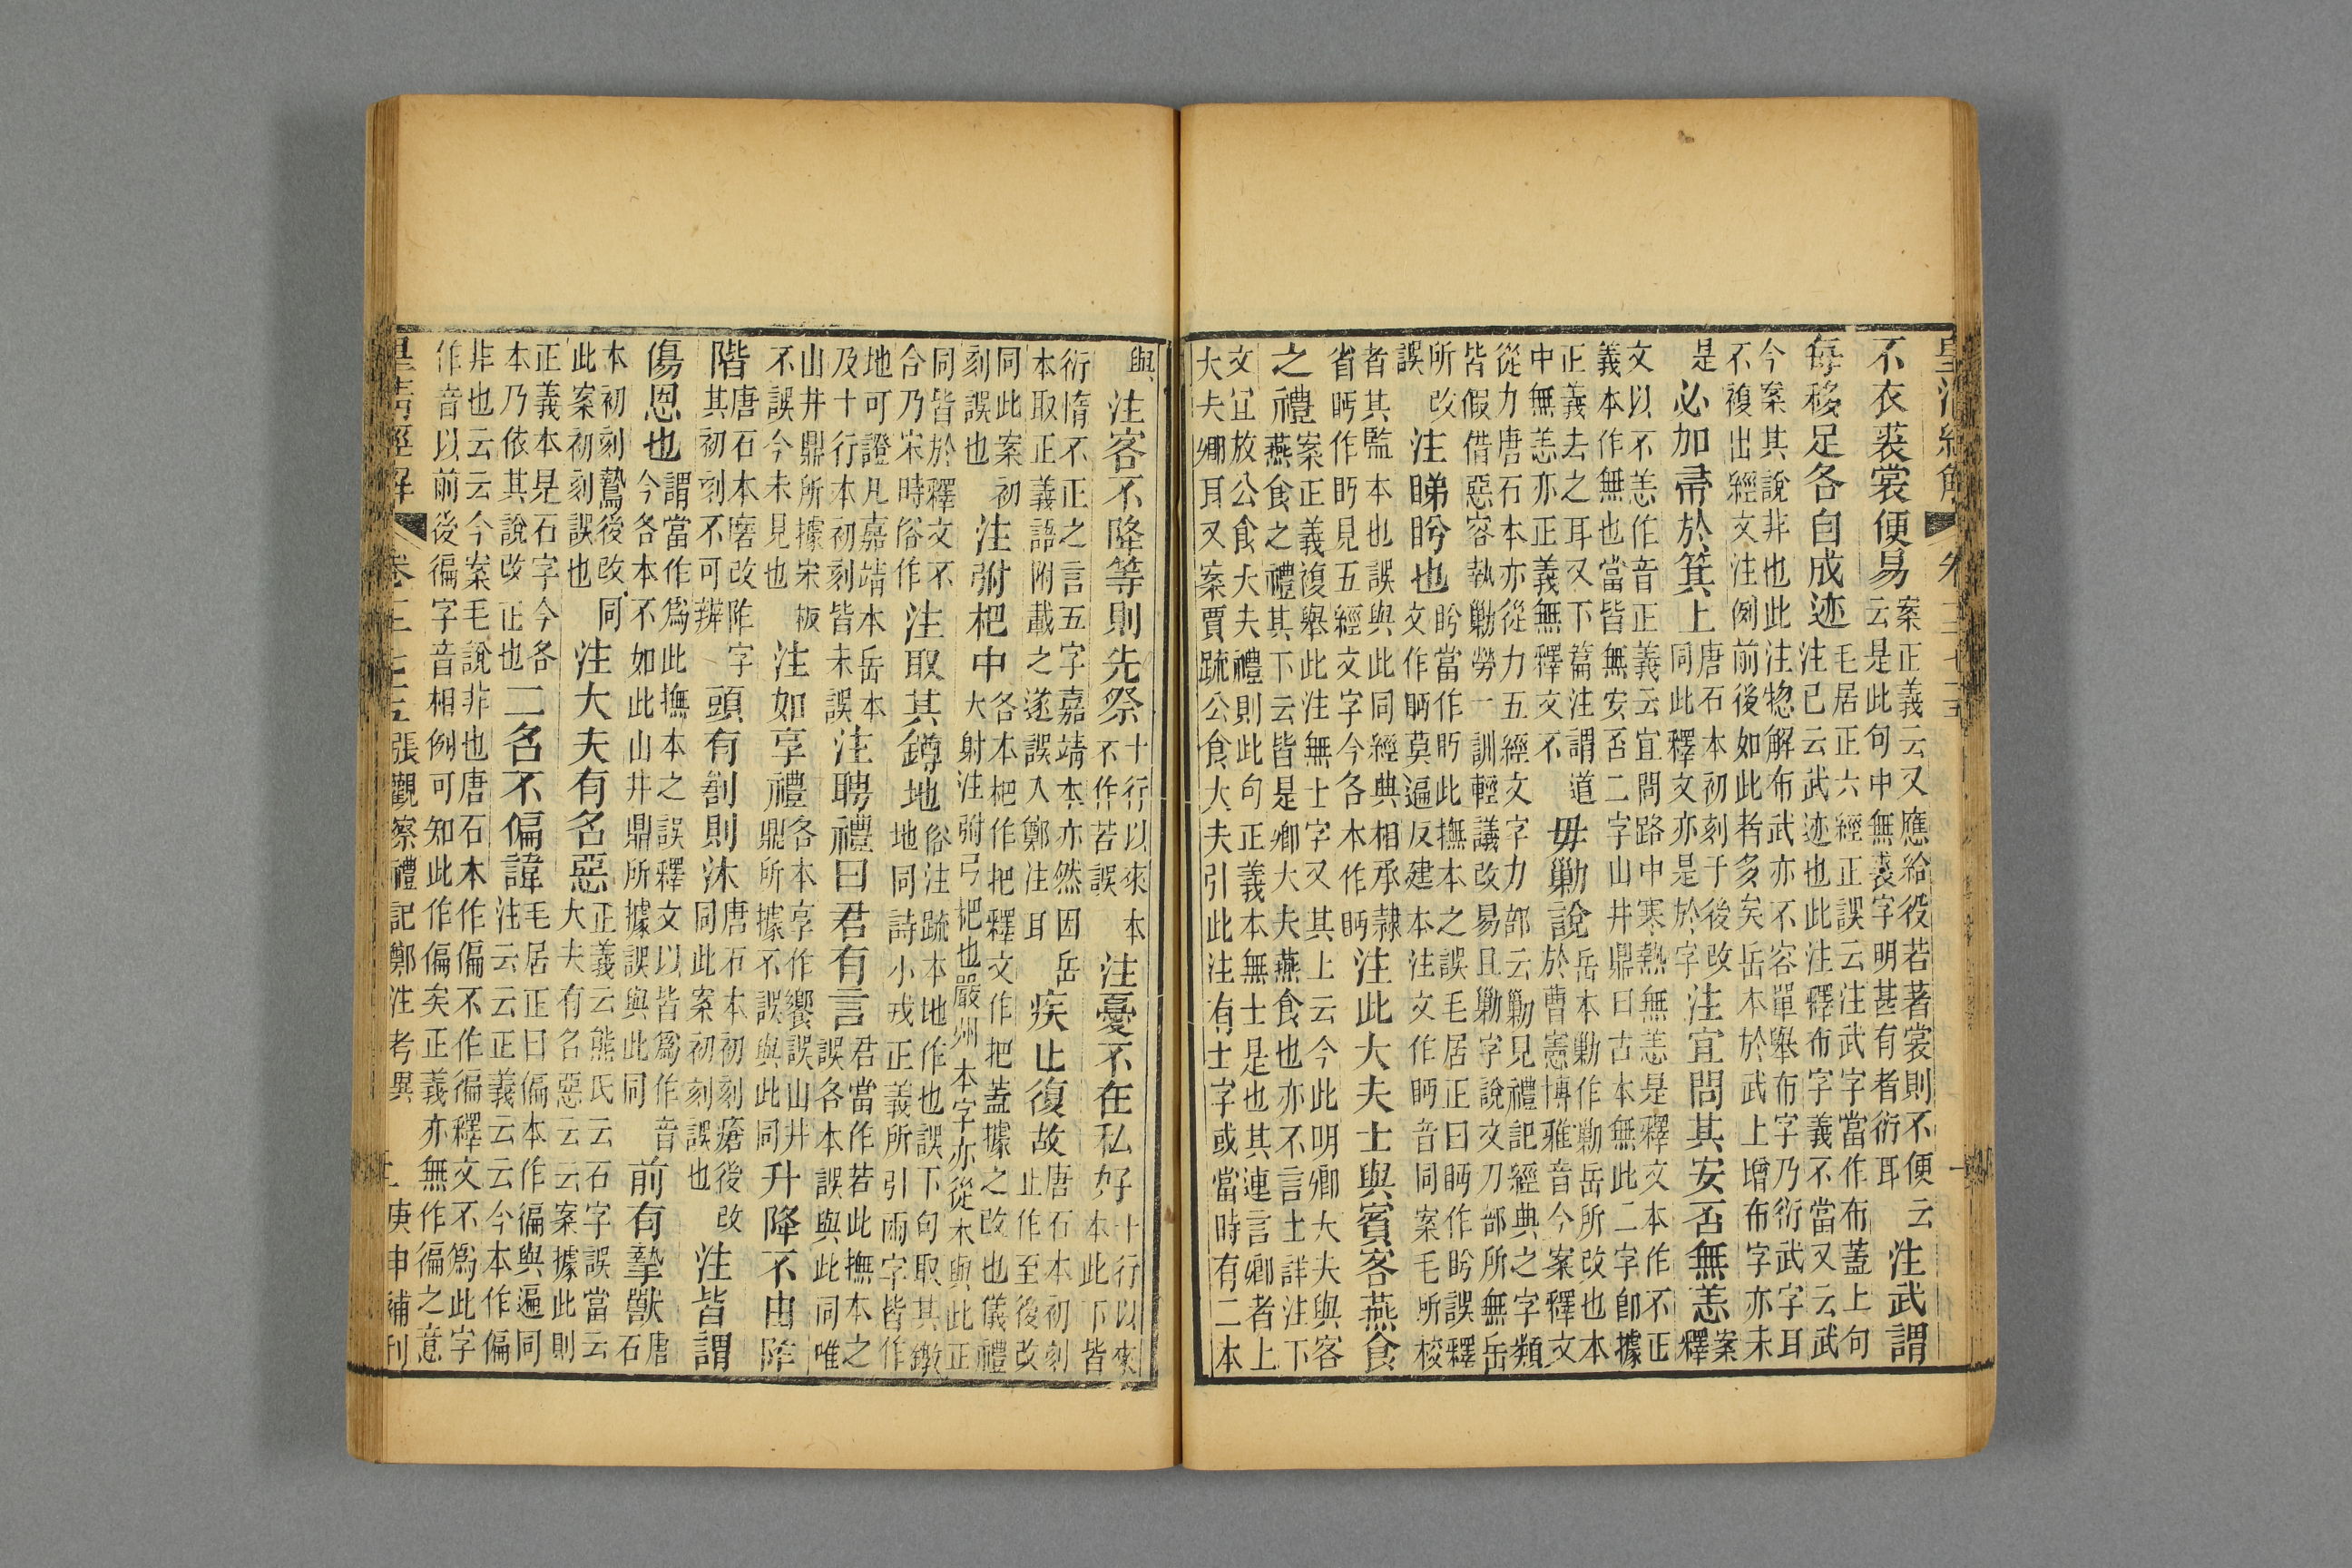 不衣裘裳便易案正義云又應給役若著裳則不便云云是此句中無裘字明甚有者衍耳注武謂
每移足各自成迹毛居正六經正誤云注武字當作布蓋上句注已云武迹也此注釋布字義不當又云武
今案其說非也此注揔解布武亦不容單舉布字乃衍武字耳不複出經文注例前後如此者多矣岳本於武上增布字亦未
是必加帚於箕上唐石本初刻于後改同此釋文亦是於字注宜問其安否無恙案釋
文以不恙作音正義云宜問路中寒熱無恙是釋文本作不正義本作無也當皆無安否二字山井鼎曰古本無此二字卽據
正義去之耳又下篇注謂道中無恙亦正義無釋文不毋勦說岳本勦作勦岳所改也本於曹憲博雅音今案釋文
從力唐石本亦從力五經文字力部云勦見禮記經典之字類皆假借惡容執勦勞一訓輕議改易且勦字說文刀部所無岳
所改誤注睇盻也盻當作眄此撫本之誤毛居正曰眄作盻誤釋文作眄莫遍反建本注文作眄音同案毛所校
者其監本也誤與此同經典相承隸省眄作眄見五經文字今各本作眄注此大夫士與賓客燕食
之禮案正義複舉此注無士字又其上云今此明卿大夫與客燕食之禮其下云皆是卿大夫燕食也亦不言士詳注下
文宜放公食大夫禮則此句正義本無士是也其連言卿者上大夫卿耳又案賈疏公食大夫引此注有士字或當時有二本
與注客不降等則先祭十行以來本不作若誤注憂不在私好十行以來本此下皆
衍惰不正之言五字嘉靖本亦然因岳本取正義語附載之遂誤入鄭注耳疾止復故唐石本初刻止作至後改
同此案初刻誤也注弣杷中各本杷作把釋文作把蓋據之改也儀禮大射注弣弓把也嚴州本字亦從木與此正
同皆於釋文不合乃宋時俗作注取其鐏地俗注疏本地作也誤下句取其鐓地同詩小戎正義所引兩字皆作
地可證凡嘉靖本岳本及十行本初刻皆未誤注聘禮曰君有言君當作若此撫本之誤各本誤與此同唯
山井鼎所據宋板不誤今未見也注如享禮各本享作饗誤山井鼎所據不誤與此同升降不由阼
階唐石本磨改阼字其初刻不可辨頭有創則沐唐石本初刻瘡後改同此案初刻誤也注皆謂
傷恩也謂當作爲此撫本之誤釋文以皆爲作音今各本不如此山井鼎所據誤與此同前有摯獸唐石
本初刻鷙後改同此案初刻誤也注大夫有名惡正義云熊氏云石字誤當云大夫有名惡云云案據此則
正義本是石字今各本乃依其說改正也二名不偏諱毛居正曰偏本作徧與遍同注云云正義云云今本作偏
非也云云今案毛說非也唐石本作偏不作徧釋文不爲此字作音以前後徧字音相例可知此作偏矣正義亦無作徧之意
皇清經解 張觀察禮記鄭注考異 庚申補刊